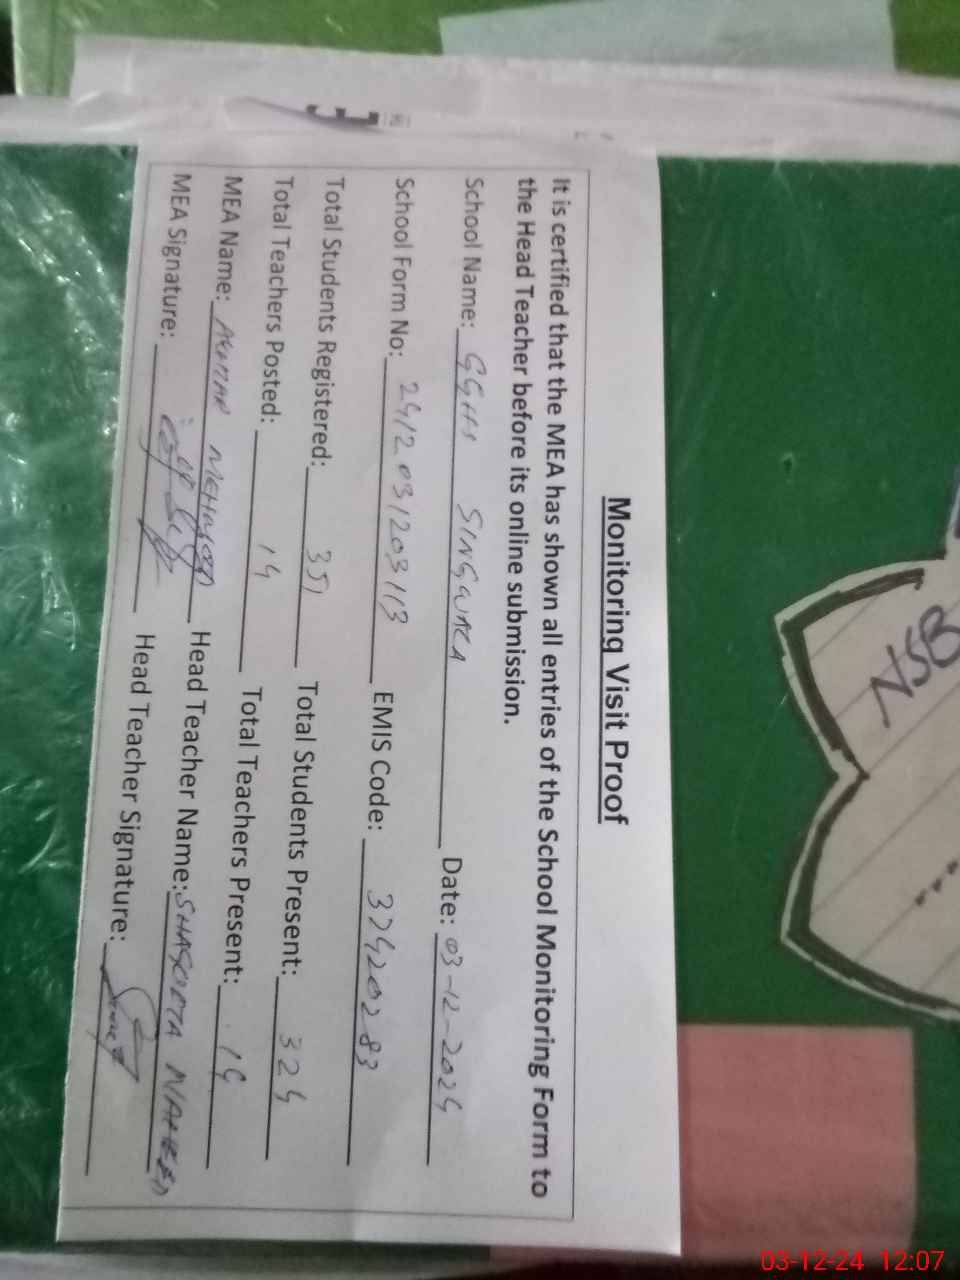 Monitoring Visit Proof
It is certified that the MEA has shown all entries of the School Monitoring Form to
the Head Teacher before its online submission.
School Name: GGHS SINGWALA Date: 03-12-2024
School Form No: 2412031203113 EMIS Code: 37420283
Total Students Registered: 351 Total Students Present: 324
Total Teachers Posted: 14 Total Teachers Present: 14
MEA Name: Head Teacher Name: SHAGUFTA NAHEED
MEA Signature: Head Teacher Signature:
NSB
03-12-24 12:07